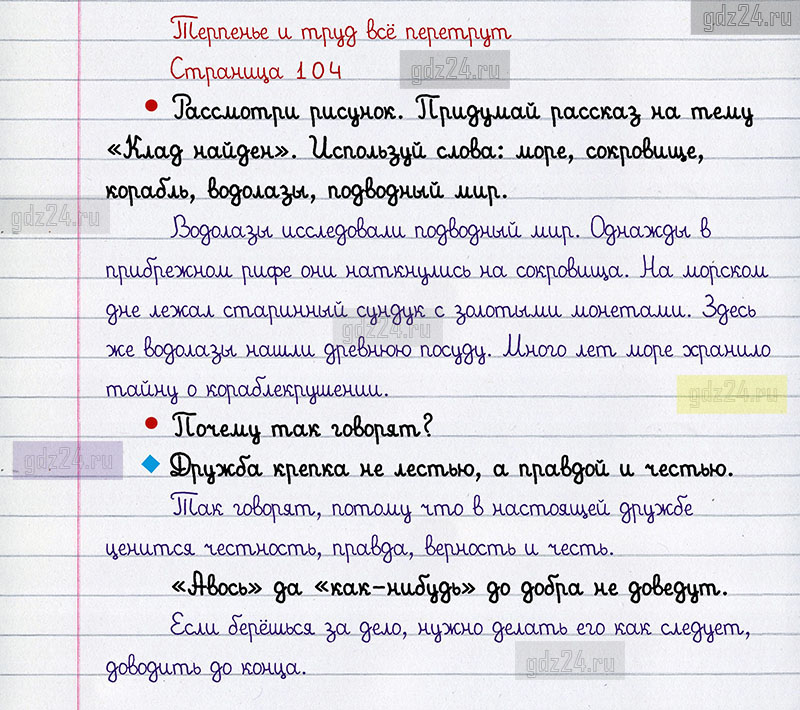 gdz24.ru
Терпенье и труд всё перетрут
Страница 104
gdz24.ru
• Рассмотри рисунок. Придумай рассказ на тему
«Клад найден». Используй слова: море, сокровище,
корабль, водолазы, подводный мир.
gdz24.ru
Водолазы исследовали подводный мир. Однажды в
прибрежном рифе они наткнулись на сокровища. На морском
дне лежал старинный сундук с золотыми монетами. Здесь
gdz24.ru
же водолазы нашли древнюю посуду. Много лет море хранило
тайну о кораблекрушении.
gdz24.ru
• Почему так говорят?
gdz24.ru
Дружба крепка не лестью, а правдой и честью.
Так говорят, потому что в настоящей дружбе
ценится честность, правда, верность и честь.
«Авось» да «как-нибудь» до добра не доведут.
Если берёшься за дело, нужно делать его как следует,
доводить до конца.
gdz24.ru